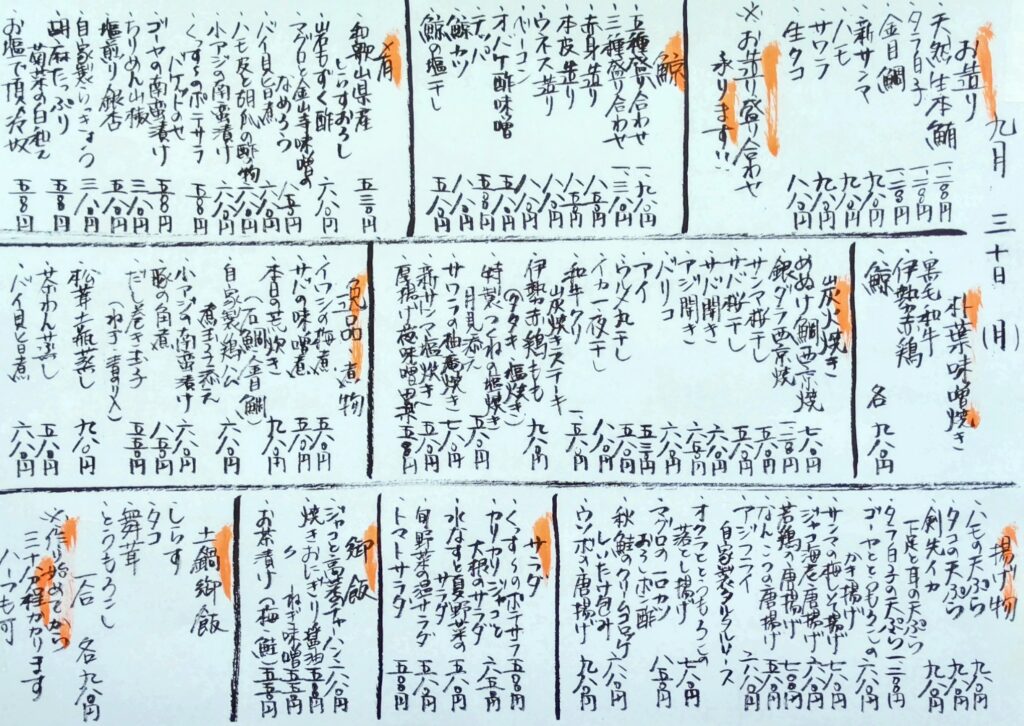 九月三十日(月)
お造り
天然生本鮪 一、二八〇円
タラ白子 一、二八〇円
金目鯛 一、二八〇円
新サンマ 九八〇円
ハモ 九八〇円
サワラ 九八〇円
生タコ 八八〇円
※お造り盛り合わせ
承ります!!
鯨
五種盛り合わせ 一、九八〇円
三種盛り合わせ 一、三八〇円
赤身造り
本皮造り
ウネス造り
ベーコン
オバケ酢味噌
テッパ
鯨カツ
鯨の塩干し
肴
和歌山県産
しらすおろし 五三〇円
岩もずく酢 六八〇円
マグロと金山寺味噌の
なめろう
バイ貝旨煮 六八〇円
ハモ皮と胡瓜の酢物 六八〇円
小アジの南蛮漬け 六八〇円
くっすーのポテサラ
バケットのせ
ゴーヤの南蛮漬け
ちりめん山椒
塩煎り銀杏
自家製らっきょう 三八〇円
胡麻たっぷり
菊菜の白和え 五八〇円
お塩で頂く冷奴 五八〇円
朴葉味噌焼き
黒毛和牛
伊勢赤鶏
鯨
各 九八〇円
炭火焼き
めぬけ鯛西京焼 七八〇円
銀ダラ西京焼 一、二八〇円
サンマ桜干し
サバ桜干し
サバ開き
アジ開き
バリコ
アイ
ウルメ丸干し
イカ一夜干し 八八〇円
和牛クリ
炭焼きステーキ
伊勢赤鶏もも
(タタキ・塩焼き) 九八〇円
特製つくねの塩焼き
月見添え
サワラの柚庵焼き 七八〇円
新サンマ塩焼き
厚揚げ葱味噌田楽 五八〇円
逸品・煮物
イワシの梅煮 五八〇円
サバの味噌煮 五八〇円
本日の荒炊き
(石鯛・金目鯛) 九八〇円
自家製鶏ハム
燻玉子添え 六八〇円
小アジの南蛮漬け 六八〇円
豚の角煮 八五〇円
だし巻き玉子
(ねぎ・青のり入) 五五〇円
松茸土瓶蒸し 九八〇円
茶わん蒸し 六八〇円
バイ貝旨煮 六八〇円
揚げ物
ハモの天ぷら 九八〇円
タコの天ぷら 九八〇円
剣先イカ
下足と耳の天ぷら 九八〇円
タラ白子の天ぷら 一、二八〇円
ゴーヤととうもろこしの
かき揚げ 六八〇円
サンマの梅しそ揚げ
ジャコ海老唐揚げ
若鶏の唐揚げ
なんこつの唐揚げ
自家製タルタルソース
アジフライ
オクラととうもろこしの
落とし揚げ 七八〇円
マグロの一口カツ
おろしポン酢 八五〇円
秋鮭のクリームコロッケ 六八〇円
しいたけ包み
ウツボの唐揚げ 九八〇円
サラダ
くっすーのポテサラ 五五〇円
カリカリジャコと
大根のサラダ
水なすと夏野菜の
サラダ
旬野菜の塩サラダ
トマトサラダ 五八〇円
御飯
ジャコと高菜チャーハン
焼きおにぎり醤油
〃 ねぎ味噌
お茶漬け(梅・鮭)
土鍋御飯
しらす
タコ
舞茸
とうもろこし
一合 各九八〇円
※作り始めてから
三十分程かかります
ハーフも可